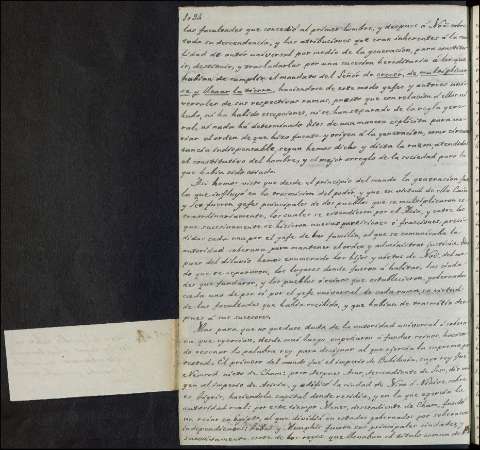 1024
las facultades que concedió al primer hombre, y despues á Noé sobre
toda su descendencia, y las atribuciones que eran inherentes á la
lidad de autor universal por medio de la generacion, para constitu-
ir, descansar, y trasladarlas por una sucesion hereditaria á los que
habian de cumplir el mandato del Señor de crecer, de multiplicar-
se y llenar la tierra, haciendose de este modo gefes y autores uni-
versales de sus respectivas ramas; puesto que con relacion á ellos ni
hubo, ni ha habido escepciones, ni se han separado de la regla gene-
ral, ni nada ha determinado Dios de una manera esplicita para va-
riar el orden de que hizo fuente y origen á la generacion, como circuns-
tancia indispensable segun hemos dicho y dicta la razon, atendido
el constitutivo del hombre, y el mejor arreglo de la sociedad para la
que habia sido criado.
Asi hemos visto que desde el principio del mundo la generacion fue
la que influyó en la transmision del poder y que en virtud de ella Cain
y Set fueron gefes principales de dos pueblos que se multiplicaron es-
traordinariamente, los cuales se estendieron por el Asia, y entre los
que sucesivamente se hicieron nuevas particiones ó fracciones, presi-
didas cada una por el gefe de la familia, al que se comunicaba la
autoridad soberana para mantener el orden y administrar justicia. Des-
pues del diluvio hemos enumerado los hijos y nietos de Noé, del mo-
do que se separaron, los lugares donde fueron á habitar, las ciuda-
des que fundaron, y los pueblos ó reinos que establecieron, gobernado
cada uno de por sí por el gefe universal de cada rama, en virtud
de las facultades que habia recibido, y que habian de trasmitir des-
pues á sus sucesores.
Mas para que no quedase duda de la autoridad universal ó sobera-
na que egercian, desde muy luego empezaron á fundar reinos, hacien-
do resonar la palabra rey para designar al que egercia la suprema po-
testad. El primer del mundo fué el imperio de Babilonia, cuyo rey fue
Nemrod nieto de Cham; poco despues Asur, descendiente de Sem, dió ori-
gen al imperio de Asiria, y edificó la ciudad de Nínive, sobre
el Tigris, haciendola capital donde residia, y en la que egercia la
autoridad real: por este tiempo descendiente de Cham, fundó
un reino en Egipto, el que dividido en estados gobernados por soberanos
independientes: Tebas y Memphis fueron sus principales ciudades, y
sucesivamente corte de los reyes que llevaban el título comun de